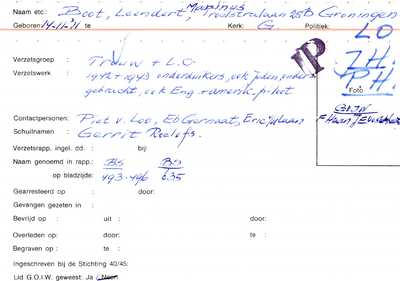 Marinus
Naam etc.: Boot, Leendert, Troelstralaan 25B Groningen
Geboren: 14-11-'11 te Kerk: G. Politiek:
LO
Z.H.
P.H.
VP
Verzetsgroep : Trouw + L.O
Verzetswerk : 1942 + 1943 onderduikers, ook joden, onder-
gebracht, ook Eng. + amerik. piloot
Foto
Contactpersonen: Piet v. Loo, Eb Gernaat, Eric
Schuilnaam : Gerrit Roelofs.
Verzetsrapp. ingel. dd. : bij:
Naam genoemd in rapp.: BS BS
op bladzijde: 493-496 635
Gearresteerd op : door:
Gevangen gezeten in :
Bevrijd op : uit : door:
Overleden op: door: te :
Begraven op : te :
Ingeschreven bij de Stichting 40/45:
Lid G.O.I.W. geweest: Ja / Neen